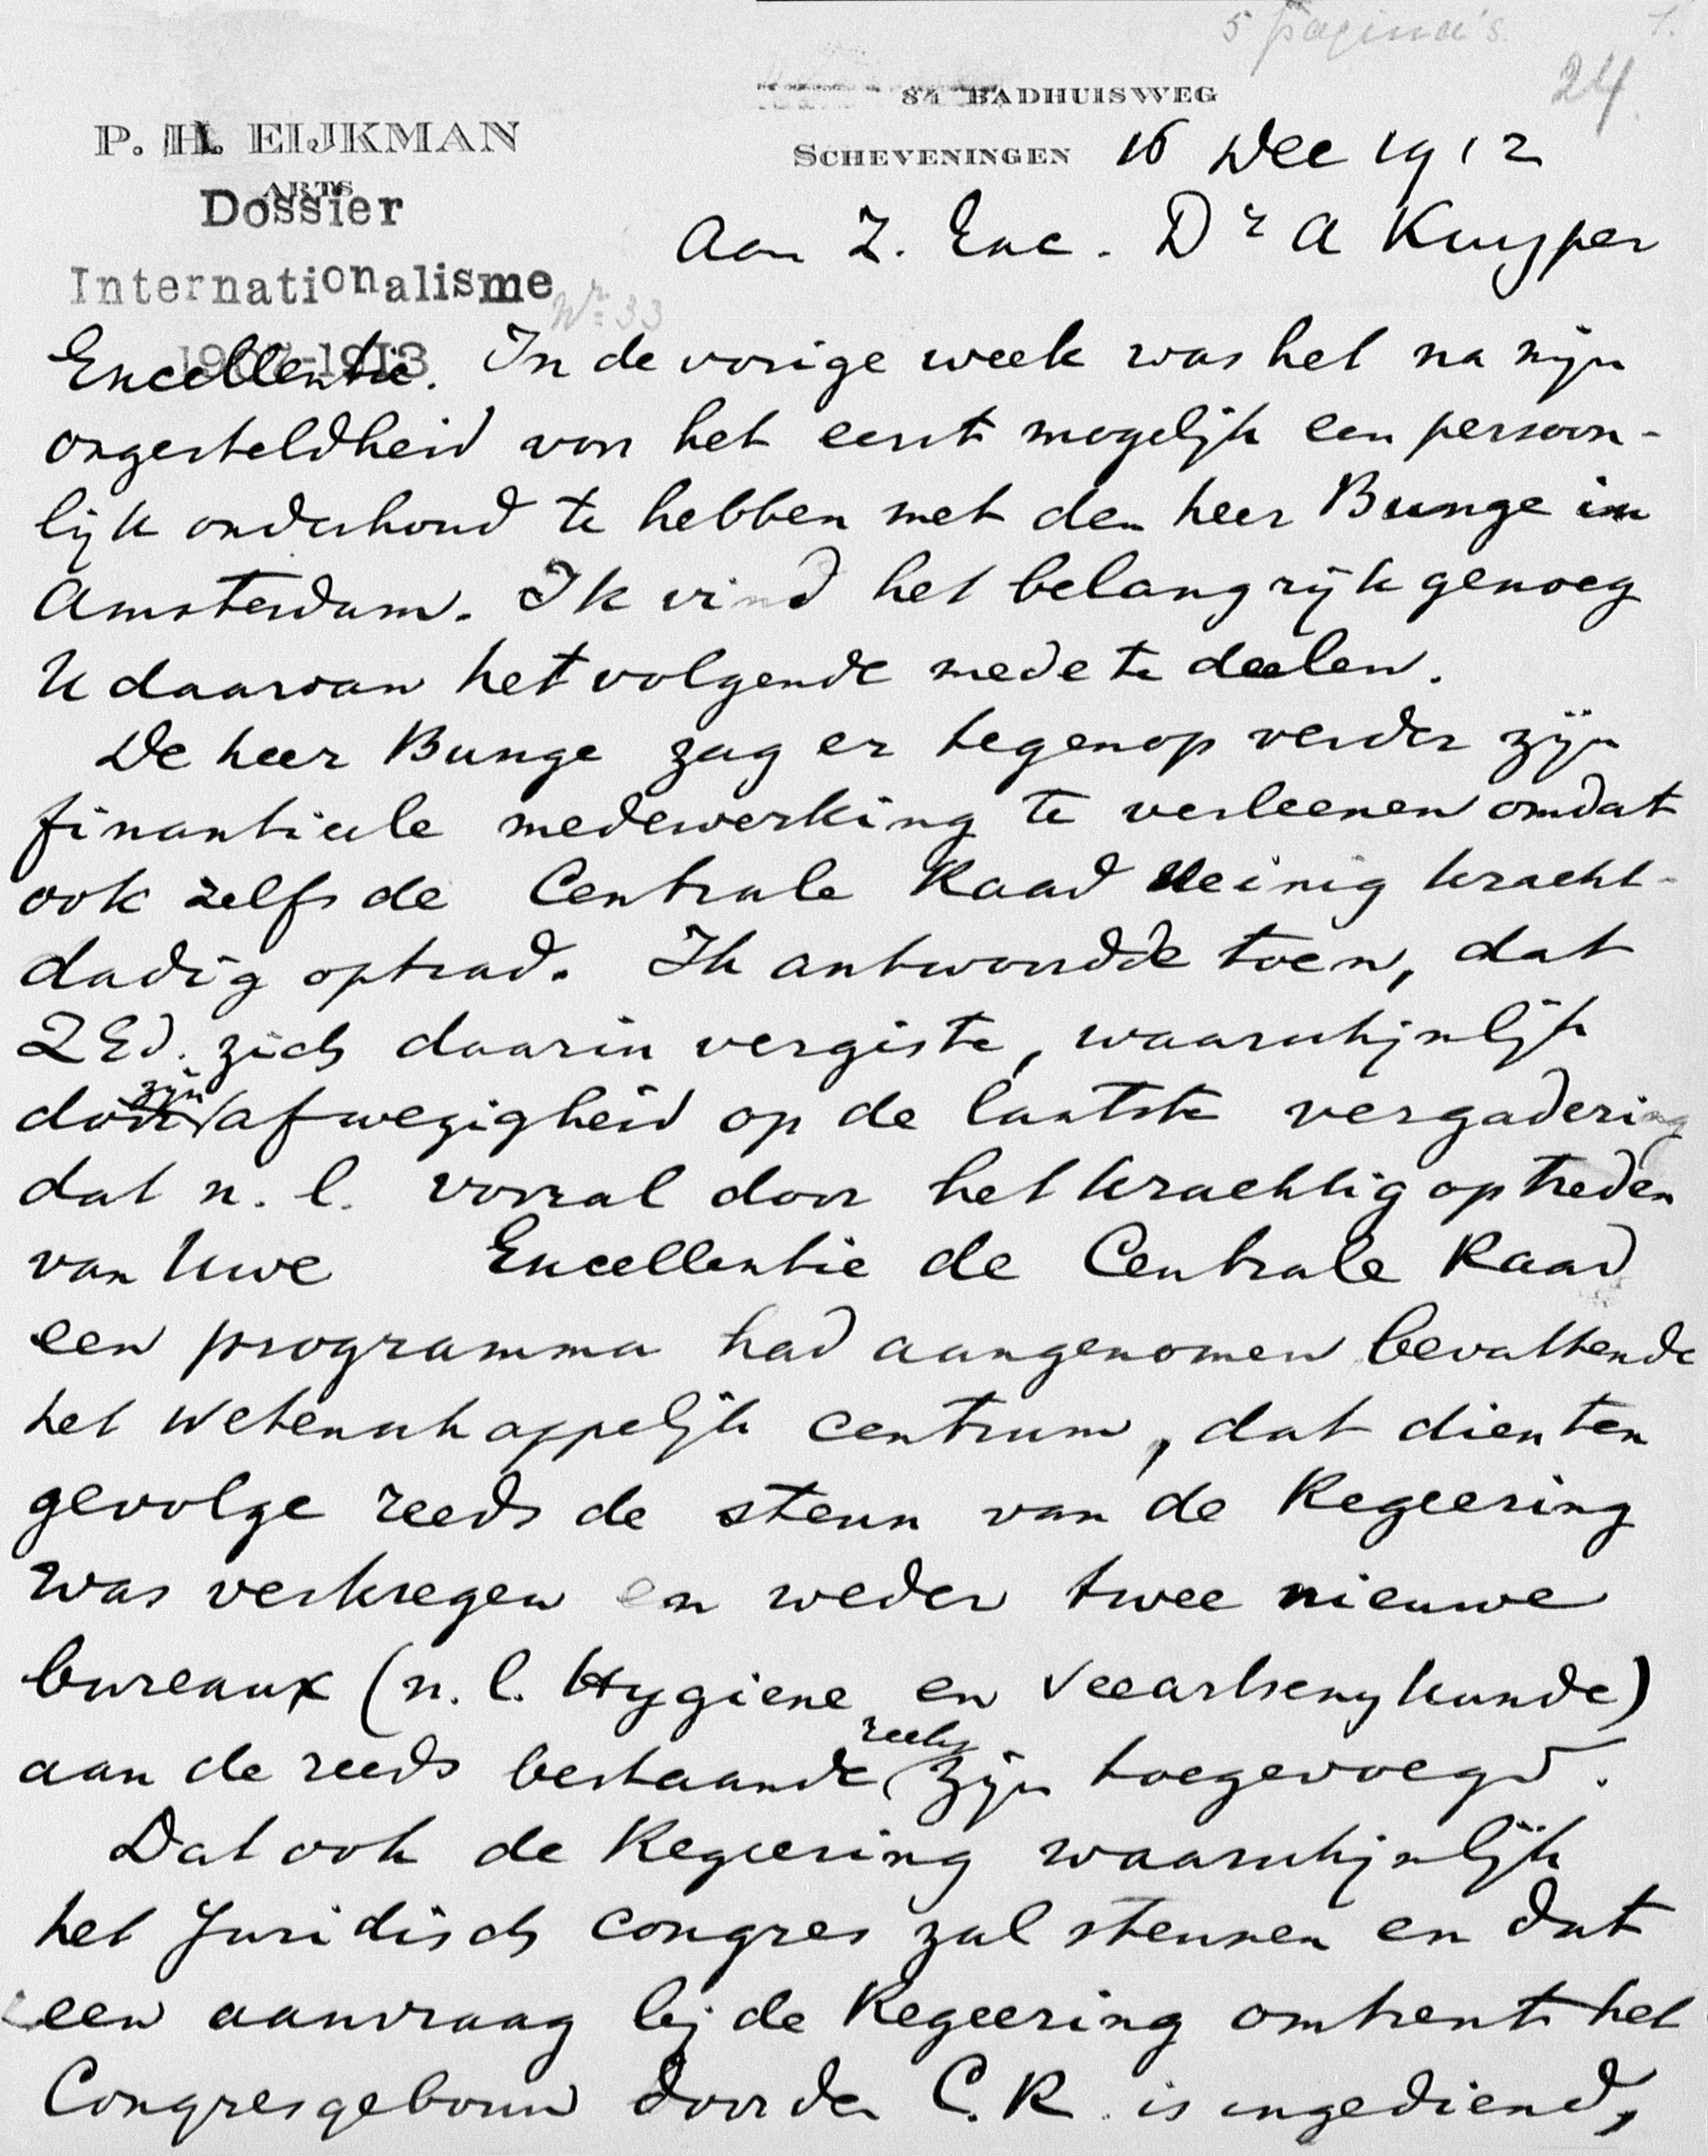 5 pagina's. 1.
24
84 BADHUISWEG
P. H. EIJKMAN
ARTS
SCHEVENINGEN 16 Dec 1912
Dossier
Aan Z. Exc. Dr A Kuyper
Internationalisme
Nr 33
Excellentie. In de vorige week was het na mijn
ongesteldheid voor het eerst mogelijk een persoon-
lijk onderhoud te hebben met den heer Bunge in
Amsterdam. Ik vind het belangrijk genoeg
U daarvan het volgende mede te deelen.
De heer Bunge zag er tegenop verder zijn
finantieele medewerking te verleenen omdat
ook zelfs de Centrale Raad weinig kracht-
dadig optrad. Ik antwoordde toen, dat
ZEd. zich daarin vergiste, waarschijnlijk
door zijn afwezigheid op de laatste vergadering
dat n. l. vooral door het krachtig optreden
van Uwe Excellentie de Centrale Raad
een programma had aangenomen bevattende
het Wetenschappelijk centrum, dat dien ten
gevolge reeds de steun van de Regeering
was verkregen en weder twee nieuwe
bureaux (n. l. Hygiene en Veeartsenykunde)
aan de reeds bestaande zijn toegevoegd.
Dat ook de Regeering waarschijnlijk
het Juridisch congres zal steunen en dat
een aanvraag bij de Regeering omtrent het
Congresgebouw door den C. R. is ingediend,